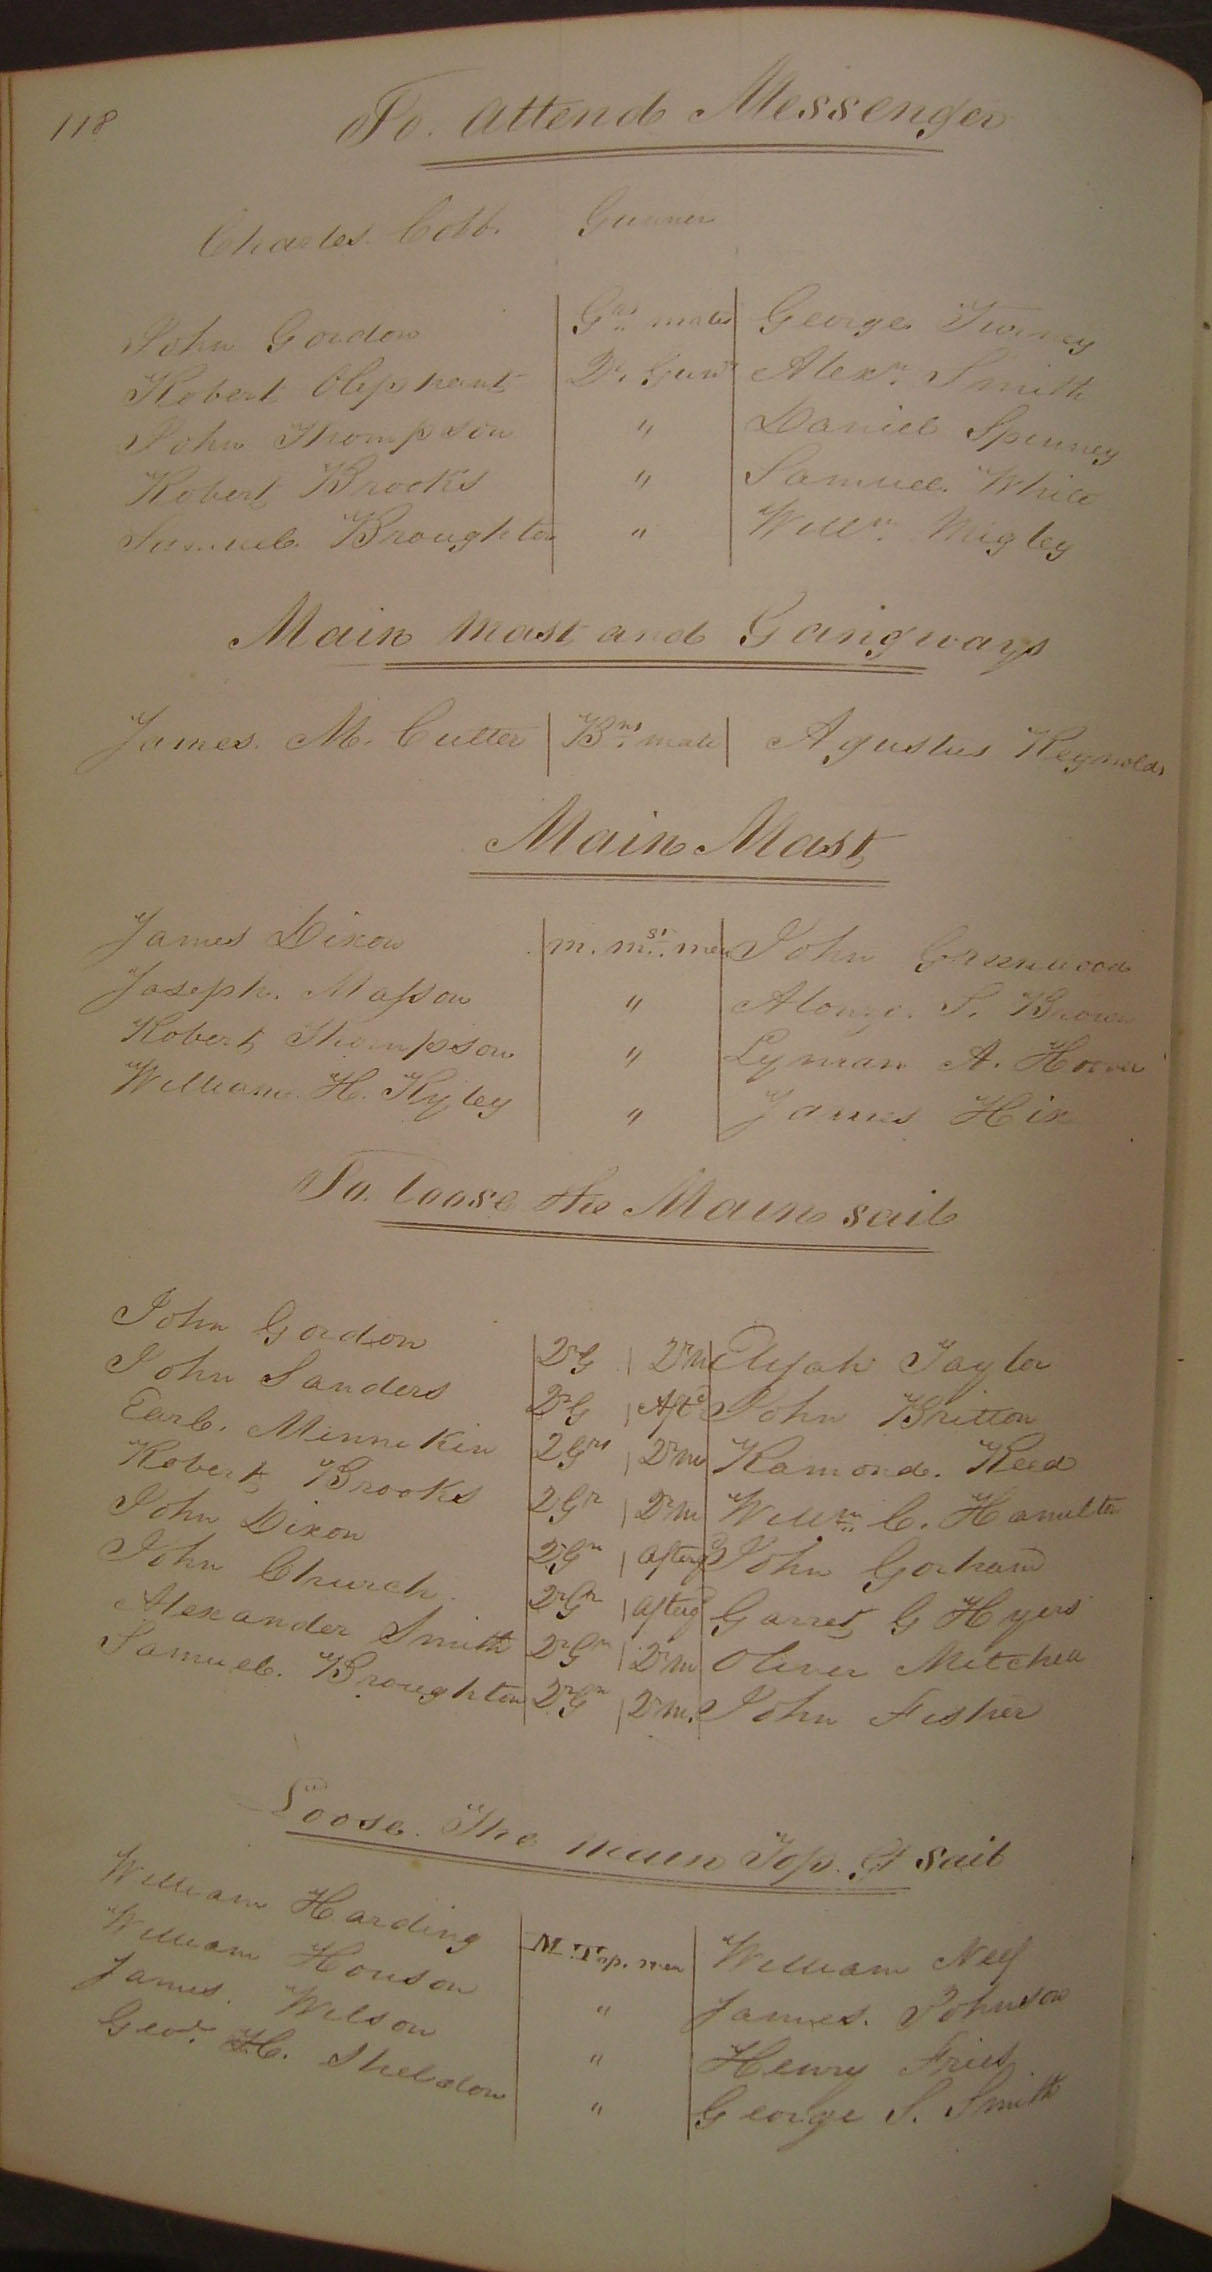 118
To. Attend Messenger
Charles. Cobb. Gunner
John Gordon Grs mates George Turney
Robert Olephant Qr. Gunr Alexr. Smith
John Thompson " Daniel Spinney
Robert Brooks " Samuel White
Samuel Broughton " Willm. Migley
Main Mast and Gangways
James. M. Cutter Bns mate Agustus Reynolds
Main Mast
James Dixon m. mst. men John Greenwood
Joseph. Masson " Alonzo. S. Brown
Robert Thompson " Lyman A. Hoover
William. H. Kyley " James Hix
To. loose the Main sail
John Gordon QrG Qrm Elijah Taylor
John Sanders QrG Aftg John Britton
Earl. Minnikin QGrs Qrm Ramond. Reed
Robert Brooks QGr Qrm Willm C. Hamilton
John Dixon QGr Afterg John Gorham
John Church. QrGr Afterg Garret G Hyers
Alexander Smith QrGr Qrm Oliver Mitchell
Samuel. Broughton QrGr Qrm. John Fisher
Loose. The Main Top. Gt Sail
William Harding M. Top. men William Neef
William Houson " James. Johnson
James. Wilson " Henry Fries
Geo. H. Sheldon " George S. Smith